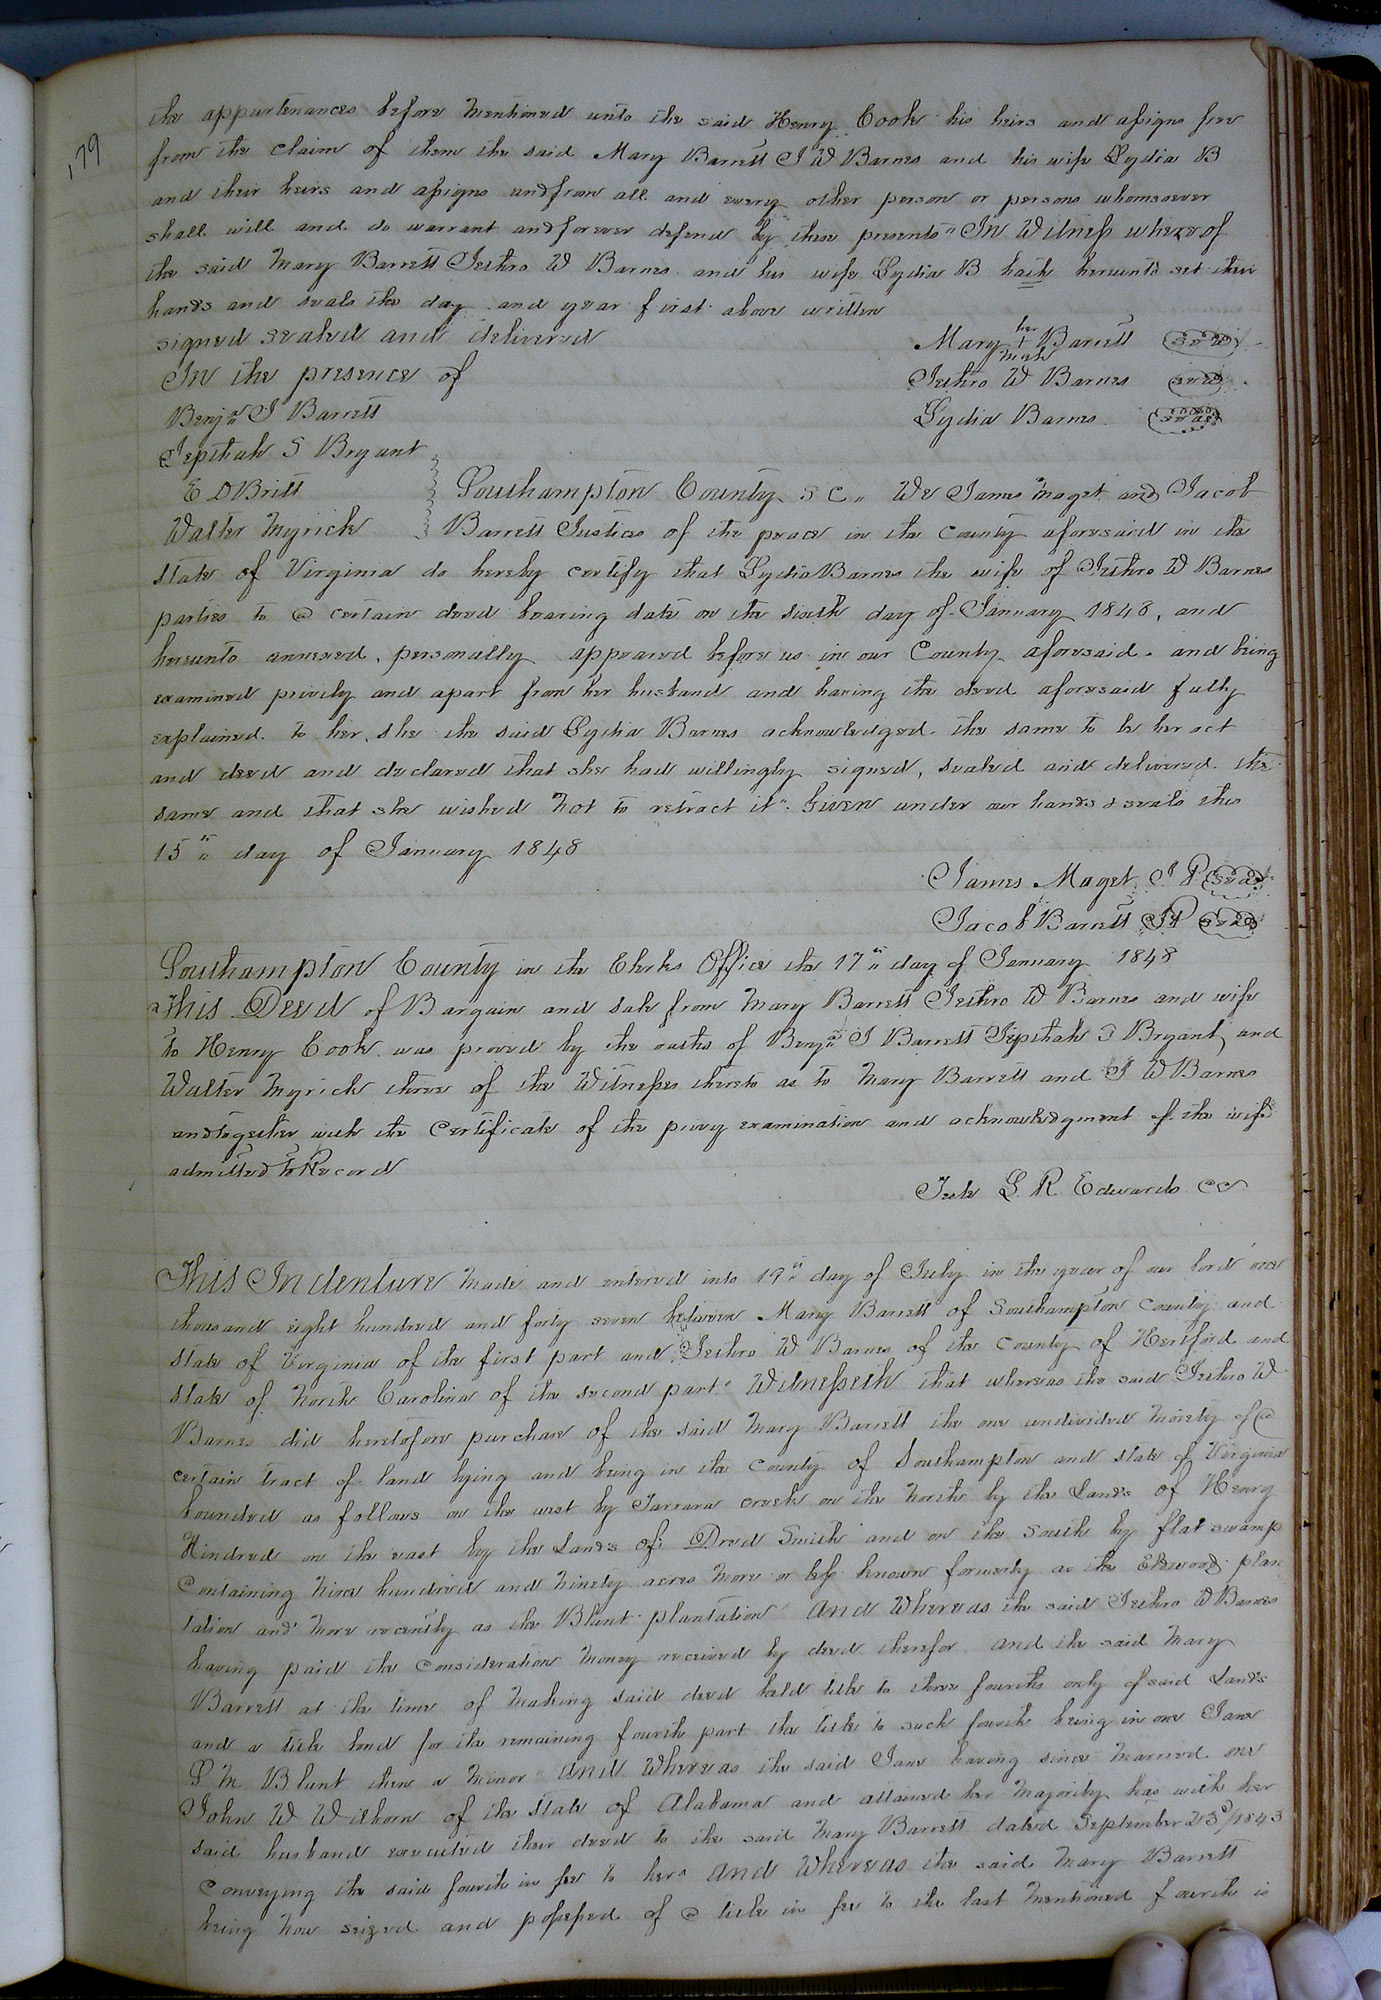 179
the appurtenances before mentioned unto the said Henry Cook his heirs and assigns free
from the claim of them the said Mary Barrett J W Barnes and his wife Lydia B
and their heirs and assigns and from all and every other person or persons whomsoever
shall will and do warrant and forever defend by these presents" In Witness whereof
the said Mary Barrett Jethro W Barnes and his wife Lydia B hath hereunto set their
hands and seals the day and year first above written
signed sealed and delivered
In the presence of
Benjn J Barrett
Jepthah S Bryant
E D Britt
Walter Myrick
Mary her + mark Barrett seal
Jethro W Barnes seal
Lydia Barnes seal
Southampton County S C" We James Maget and Jacob
Barrett Justices of the peace in the County aforesaid in the
state of Virginia do hereby certify that Lydia Barnes the wife of Jethro W Barnes
parties to a certain deed bearing date on the sixth day of January 1848, and
hereunto annexed, personally appeared before us in our County aforesaid and being
examined privily and apart from her husband and having the deed aforesaid fully
explained to her, she the said Lydia Barnes acknowledged the same to be her act
and deed and declared that she had willingly signed, sealed and delivered the
same and that she wished not to retract it". Given under our hands & seals this
15th day of January 1848
James Maget J P seal
Jacob Barrett JP seal
Southampton County in the Clerks Office the 17th day of January 1848
This Deed of Bargain and sale from Mary Barrett Jethro W Barnes and wife
to Henry Cook was proved by the oaths of Benjn J Barrett Jepthah S Bryant and
Walter Myrick three of the Witnesses thereto as to Mary Barrett and J W Barnes
and together with the Certificate of the privy examination and acknowledgment of the wife
admitted to Record
Teste L. R. Edwards CC
This Indenture made and entered into 19th day of July in the year of our lord one
thousand eight hundred and forty seven between Mary Barrett of Southampton County and
state of Virginia of the first part and Jethro W Barnes of the County of Hertford and
state of North Carolina of the second part" Witnesseth that whereas the said Jethro W
Barnes did heretofore purchase of the said Mary Barrett the one undivided moiety of a
certain tract of land lying and being in the County of Southampton and state of Virginia
bounded as follows on the west by Tarrara creek on the north by the Lands of Henry
Kindred on the east by the Lands of Dred Smith and on the south by flat swamp
Containing nine hundred and ninety acres more or less known formerly as the Edwood plan
tation and more recently as the Blunt plantation" And Whereas the said Jethro W Barnes
having paid the consideration money received by deed therefor and the said Mary
Barrett at the time of making said deed held title to three fourths only of said Lands
and a title bond for the remaining fourth part the title to such fourth being in one Jane
P M Blunt then a minor" And Whereas the said Jane having since married one
John W Wilborn of the State of Alabama and attained her majority has with her
said husband executed their deed to the said Mary Barrett dated September 23d/1843
Conveying the said fourth in fee to her" And Whereas the said Mary Barrett
being now seized and possessed of a title in fee to the last mentioned fourth is